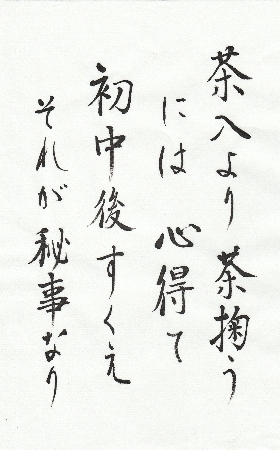 茶入より 茶掬う
には 心得て
初中後すくえ
それが秘事なり